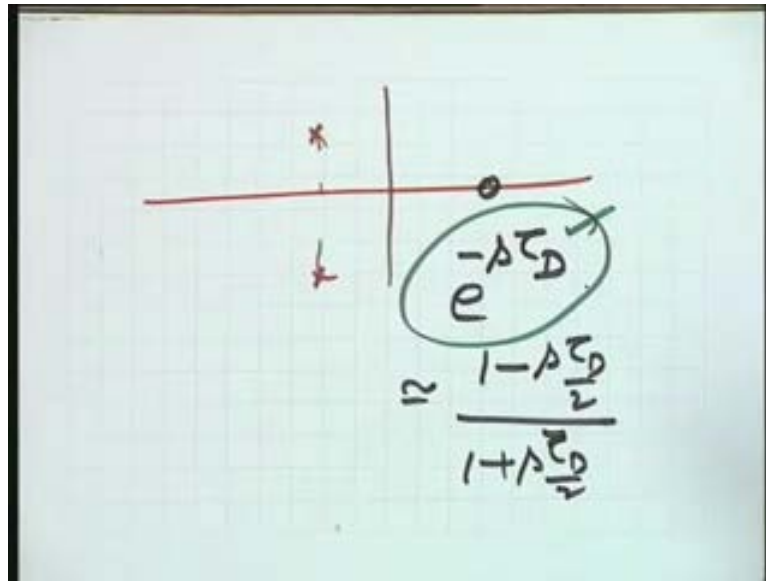 e^{-sτ_D}
≃ \frac{1-s\frac{τ_D}{2}}{1+s\frac{τ_D}{2}}